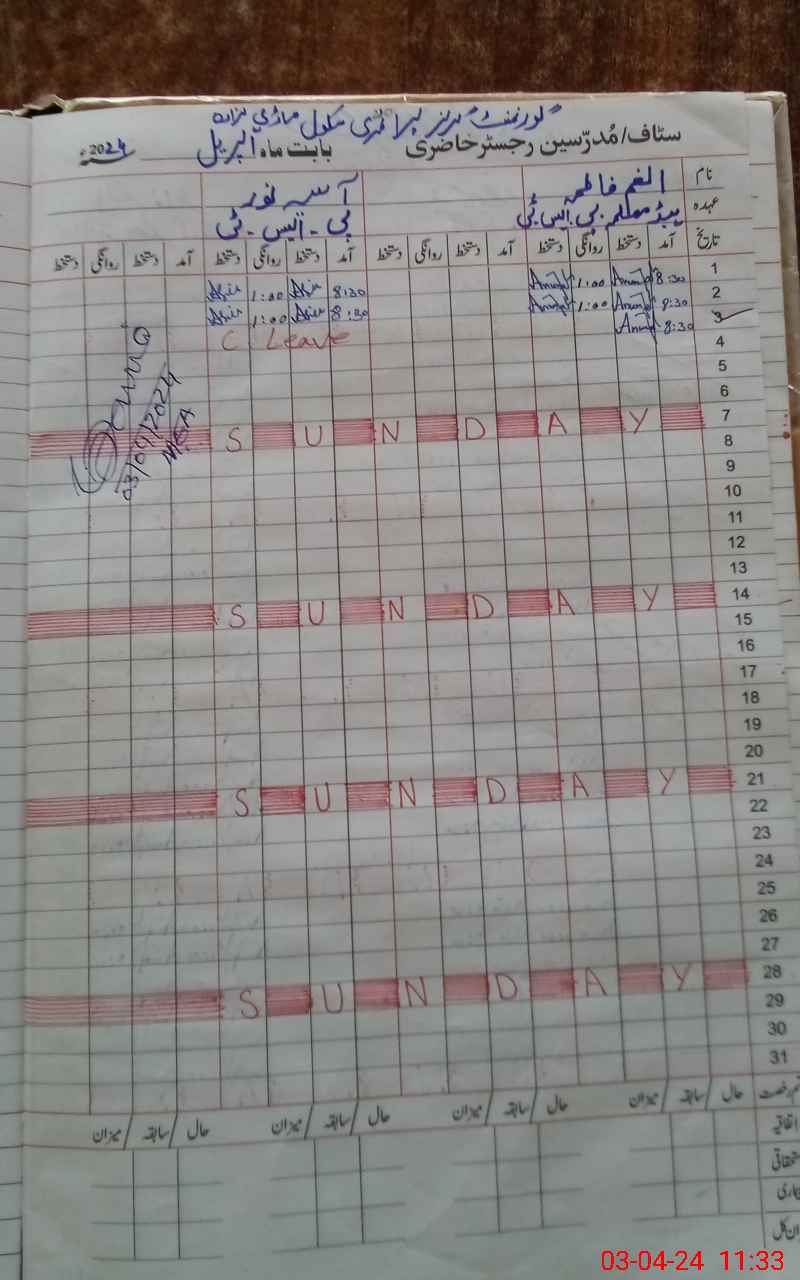 گورنمنٹ گرلز پرائمری سکول ماڑی
سٹاف/مُدرّسین رجسٹر حاضری بابت ماہ اپریل 2024ء
نام الغم فاطمہ آسیہ نور
عہدہ ہیڈ معلمہ پی ایس ٹی پی - ایس - ٹی
تاریخ آمد دستخط روانگی دستخط آمد دستخط روانگی دستخط آمد دستخط روانگی دستخط آمد دستخط روانگی دستخط
1 8:30 1:00 8:30 1:00
2 8:30 1:00 8:30 1:00
3 8:30 C Leave
4
5
6
7 SUNDAY
8
03/04/2024
MEA
9
10
11
12
13
14 SUNDAY
15
16
17
18
19
20
21 SUNDAY
22
23
24
25
26
27
28 SUNDAY
29
30
31
قسم رخصت حال / سابقہ / میزان حال / سابقہ / میزان حال / سابقہ / میزان حال / سابقہ / میزان
اتفاقیہ
03-04-24 11:33